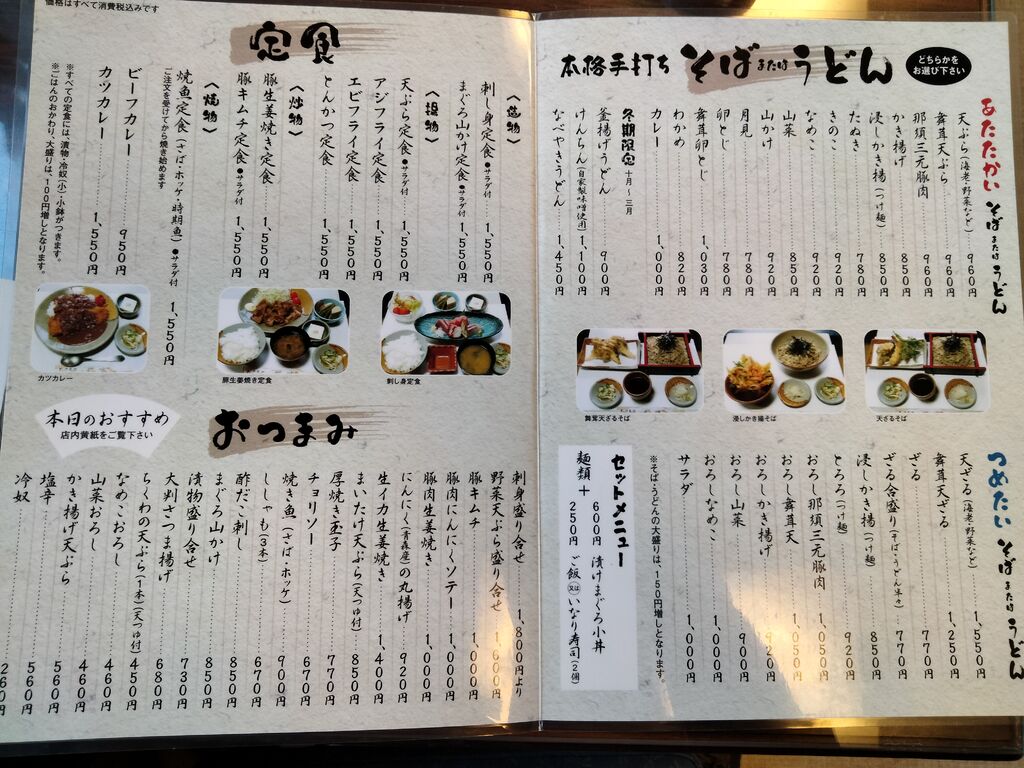 本格手打ち そば または うどん
どちらかを
お選び下さい
あたたかい そば または うどん
天ぷら(海老・野菜など) 960円
舞茸天ぷら 960円
那須三元豚肉 960円
かき揚げ 850円
浸しかき揚(つけ麺) 850円
たぬき 780円
きのこ 920円
なめこ 920円
山菜 850円
山かけ 920円
月見 780円
卵とじ 780円
舞茸卵とじ 1,030円
わかめ 820円
カレー 1,000円
冬期限定 十月〜三月
釜揚げうどん 900円
けんちん(自家製味噌使用) 1,100円
なべやきうどん 1,450円
天ざるそば
浸しかき揚そば
舞茸天ざるそば
つめたい そば または うどん
天ざる(海老・野菜など) 1,550円
舞茸天ざる 1,250円
ざる 770円
ざる合盛り(そば・うどん半々) 770円
浸しかき揚(つけ麺) 850円
とろろ(つけ麺) 920円
おろし那須三元豚肉 1,050円
おろし舞茸天 1,050円
おろしかき揚げ 920円
おろし山菜 900円
おろしなめこ 1,000円
サラダ 1,000円
※そば・うどんの大盛りは、150円増しとなります。
セットメニュー
麺類+
600円 漬けまぐろ小丼
250円 ご飯又はいなり寿司(2個)
価格はすべて消費税込みです
定食
〈造物〉
刺し身定食●サラダ付 1,550円
まぐろ山かけ定食●サラダ付 1,550円
〈揚物〉
天ぷら定食●サラダ付 1,550円
アジフライ定食 1,550円
エビフライ定食 1,550円
とんかつ定食 1,550円
〈炒物〉
豚生姜焼き定食 1,550円
豚キムチ定食●サラダ付 1,550円
〈焼物〉
焼魚定食(さば・ホッケ・時期魚)●サラダ付 1,550円
ご注文を受けてから焼き始めます
ビーフカレー 950円
カツカレー 1,550円
※すべての定食には、漬物・冷奴(小)・小鉢がつきます。
※ごはんのおかわり、大盛りは、100円増しとなります。
刺し身定食
豚生姜焼き定食
カツカレー
本日のおすすめ
店内黄紙をご覧下さい
おつまみ
刺身盛り合せ 1,800円より
野菜天ぷら盛り合せ 1,600円
豚キムチ 1,000円
豚肉にんにくソテー 1,000円
豚肉生姜焼き 1,000円
にんにく(青森産)の丸揚げ 920円
生イカ生姜焼き 1,400円
まいたけ天ぷら(天つゆ付) 850円
厚焼き玉子 770円
チョリソー 670円
焼き魚(さば・ホッケ) 900円
ししゃも(3本) 670円
酢だこ刺し 850円
まぐろ山かけ 850円
漬物盛り合せ 730円
大判さつま揚げ 680円
ちくわの天ぷら(1本)(天つゆ付) 450円
なめこおろし 460円
山菜おろし 460円
かき揚げ天ぷら 560円
塩辛 560円
冷奴 260円